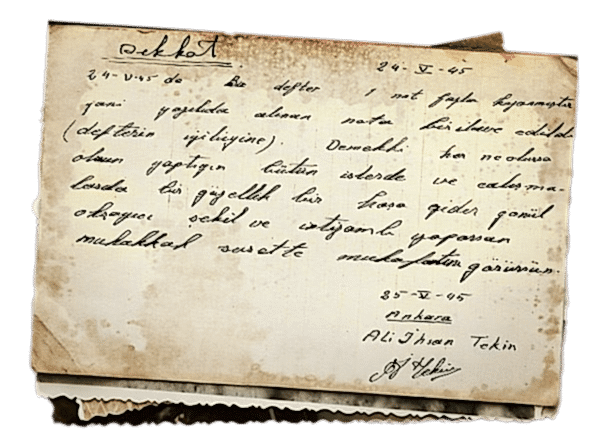 Dikkat.
24-V-45
24-V-45 de Bu defter 1 not fazla kazanmıştır
yani yazılıda alınan nota bir ilave edildi
(defterin iyiliğine). Demekki her ne olursa
olsun yaptığın bütün işlerde ve çalışma-
larda bir güzellik bir hoşa gider gönül
okşayıcı şekil ve intizamlı yaparsan
muhakkak surette mukafatını görürsün.
25-V-45
Ankara
Ali İhsan Tekin